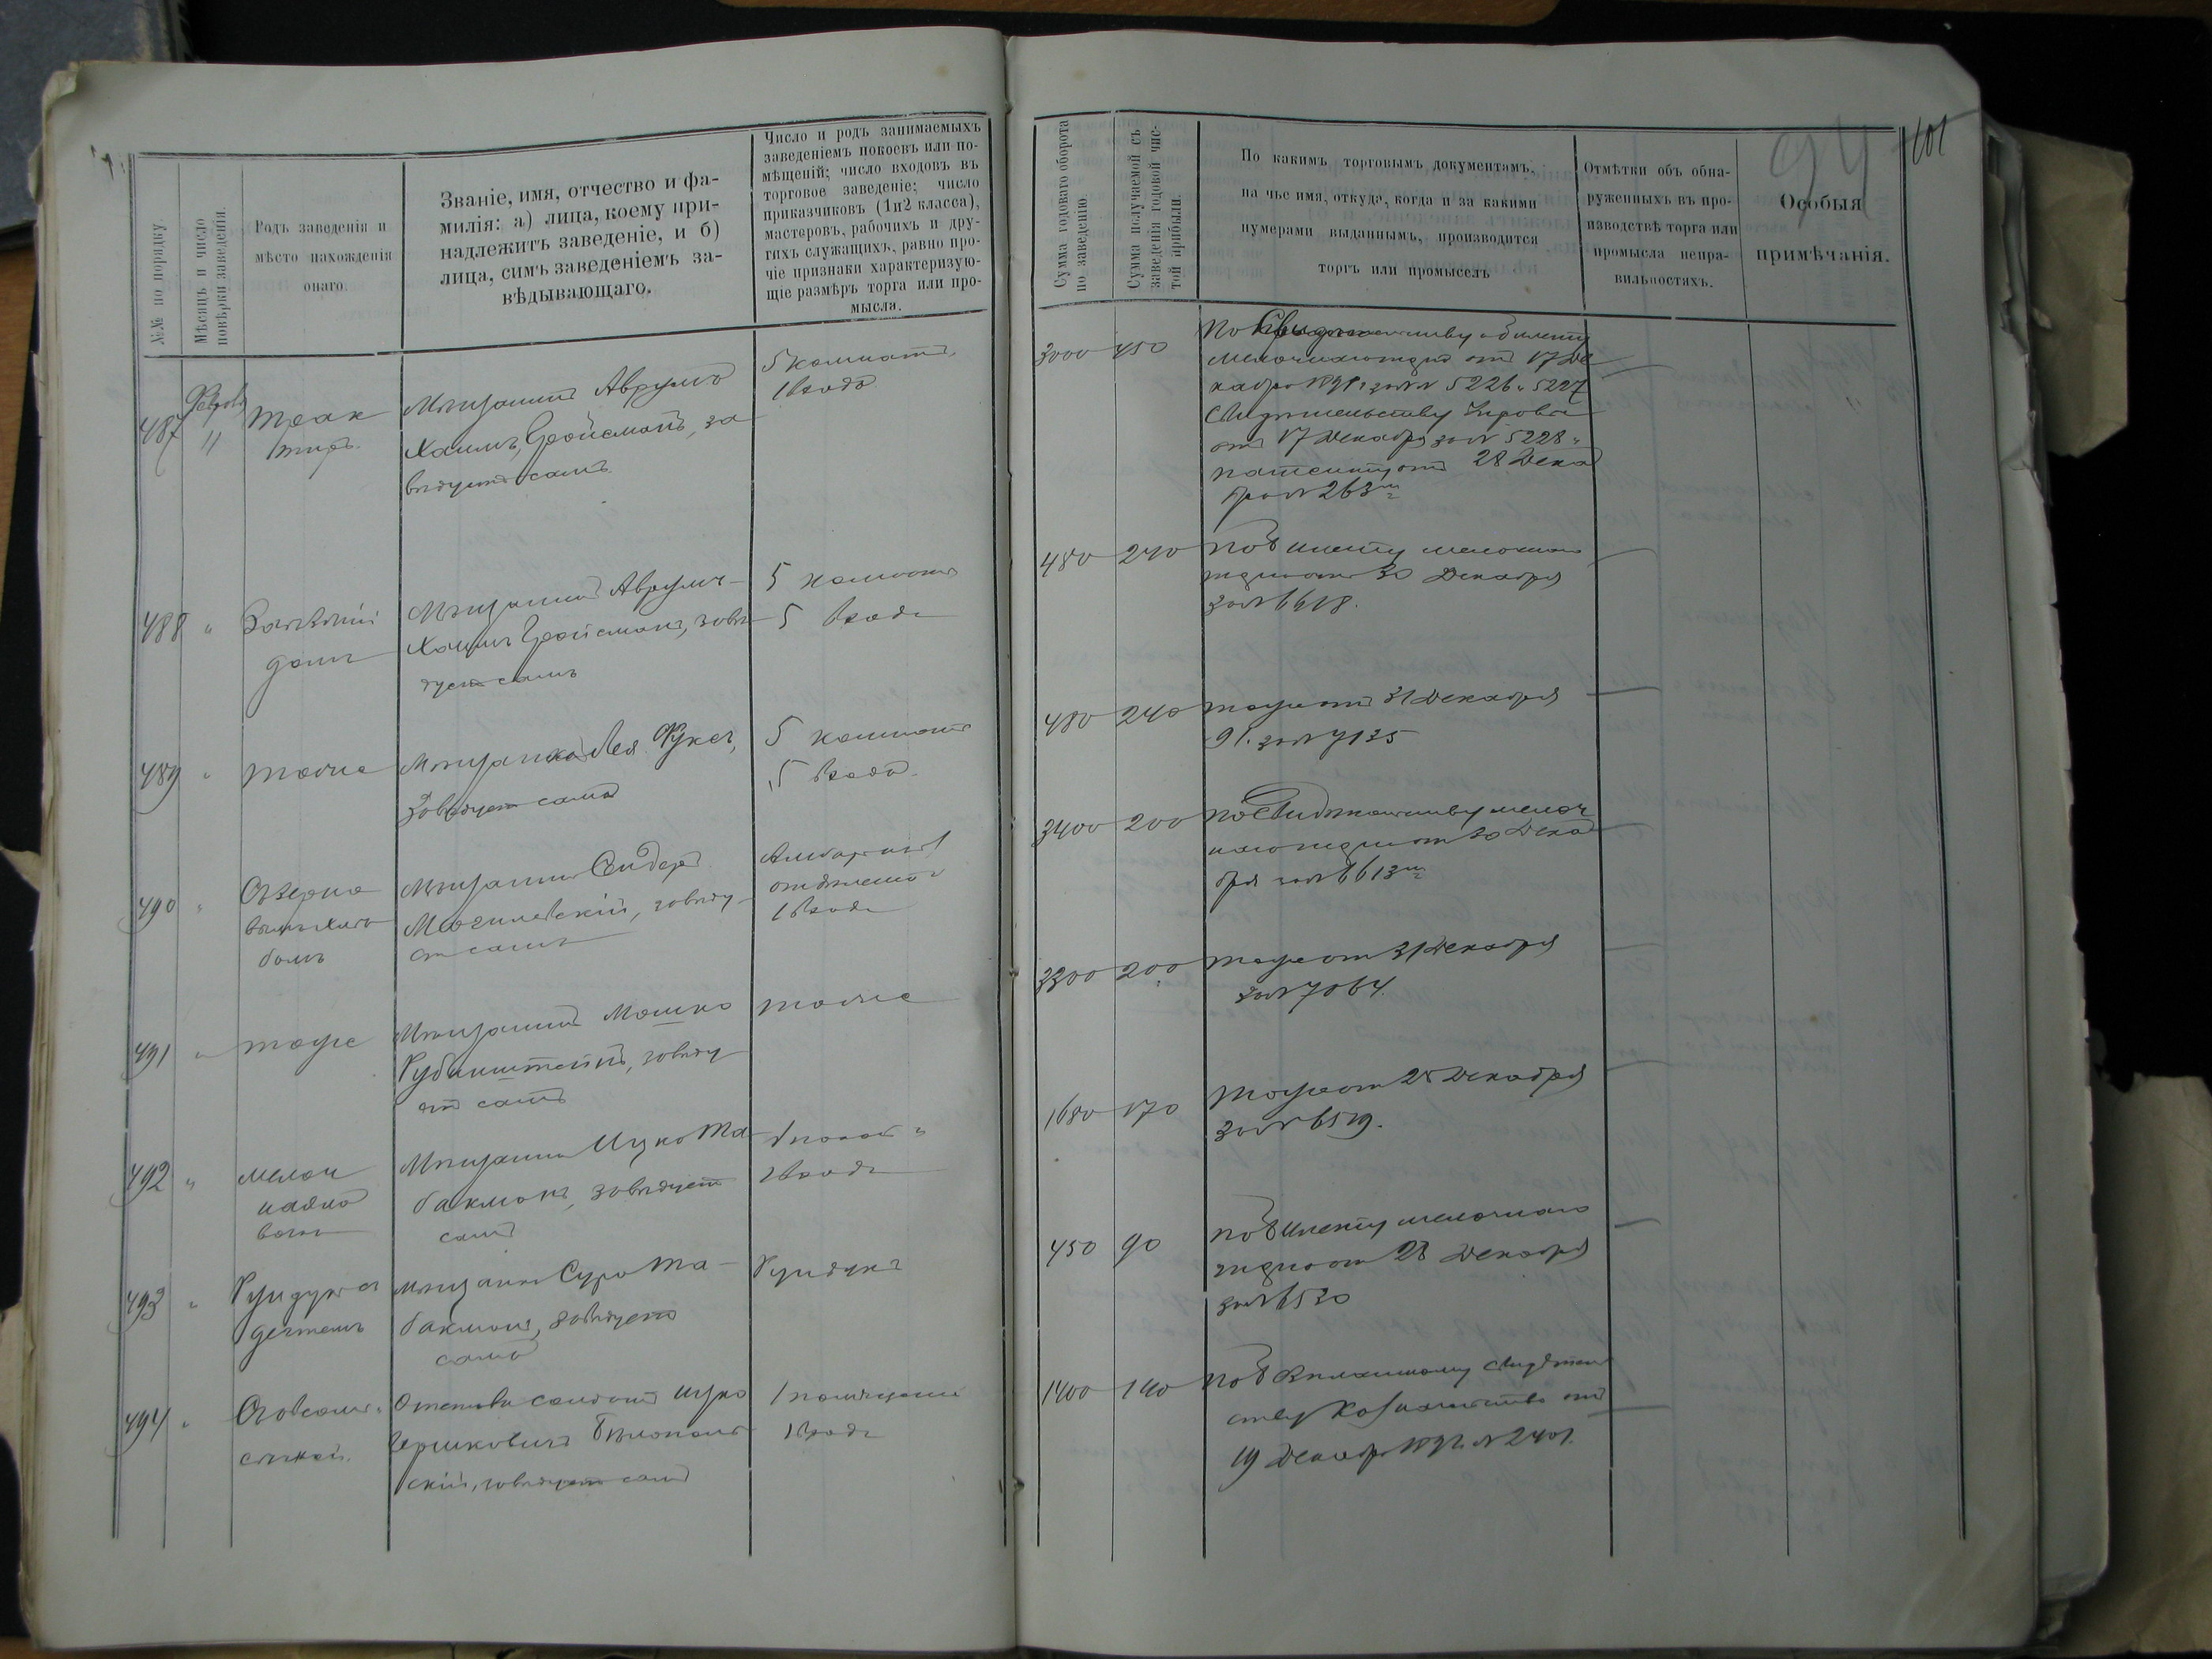 101
94
№№ по порядку.
Мѣсяцъ и число
повѣрки заведенія.
Родъ заведенія и
мѣсто нахожденія
онаго.
Званіе, имя, отчество и фа-
милія: а) лица, коему при-
надлежитъ заведеніе, и б)
лица, симъ заведеніемъ за-
вѣдывающаго.
Число и родъ занимаемыхъ
заведеніемъ покоевъ или по-
мѣщеній; число входовъ въ
торговое заведеніе; число
приказчиковъ (1и2 класса),
мастеровъ, рабочихъ и дру-
гихъ служащихъ, равно про-
чіе признаки характеризую-
щіе размѣръ торга или про-
мысла.
Сумма годоваго оборота
по заведенію.
Сумма получаемой съ
заведенія годовой чис-
той прибыли.
По какимъ торговымъ документамъ,
на чье имя, откуда, когда и за какими
нумерами выданнымъ, производится
торгъ или промыселъ
Отмѣтки объ обна-
руженныхъ въ про-
изводствѣ торга или
промысла непра-
вильностяхъ.
Особыя
примѣчанія.
487
11
Трак
тиръ.
Мѣщанинъ Аврумъ
Хаимъ Гройсманъ, за
вѣдуетъ самъ
5 комнатъ,
1 входъ
3000
450
билету
от 17 Де
кабря 5226 и 5227
Свидѣтельству
от 17 Декабря за № 5228 и
патенту от 28 Дека
бря № 263
488 "
Заѣзжій
домъ
Мѣщанинъ Аврумъ
Хаимъ Гройсманъ, завѣ
дуетъ самъ
5 комнатъ
5 входъ
480
240
По билету мелочнаго
от 30 Декабря
за № 6618.
489 "
тоже
Мѣщанка Лея Фуксъ,
завѣдуетъ сама
5 комнатъ
5 входъ.
480
240
тоже от 31 Декабря
91. за № 7135
490 "
Мѣщанинъ Сендеръ
Могилевскій, завѣду
етъ самъ
1 входъ
3400
200
По Свидѣтельству мелоч
от 30 Дека
бря за № 6613
491 "
тоже
Мѣщанинъ Мошко
Рубинштейнъ, завѣду
етъ самъ
тоже
3300
200
тоже от 31 Декабря
за № 7064.
492 "
мелоч
Мѣщанинъ Ицко Та
бакманъ, завѣдуетъ
самъ
1680
170
Тоже от 28 Декабря
за № 6519.
493 "
дегтемъ
Мѣщанка Сура Та-
бакманъ, завѣдуетъ
сама
450
90
По билету мелочнаго
от 28 Декабря
за № 6530
494 "
Отставной солдатъ Ицко
Гершковичъ
скій, завѣдуетъ самъ
1 помѣщеніе
1 входъ
1400
140
По безплатному свидѣтель
ству Казначейства от
19 Декабря № 2401.